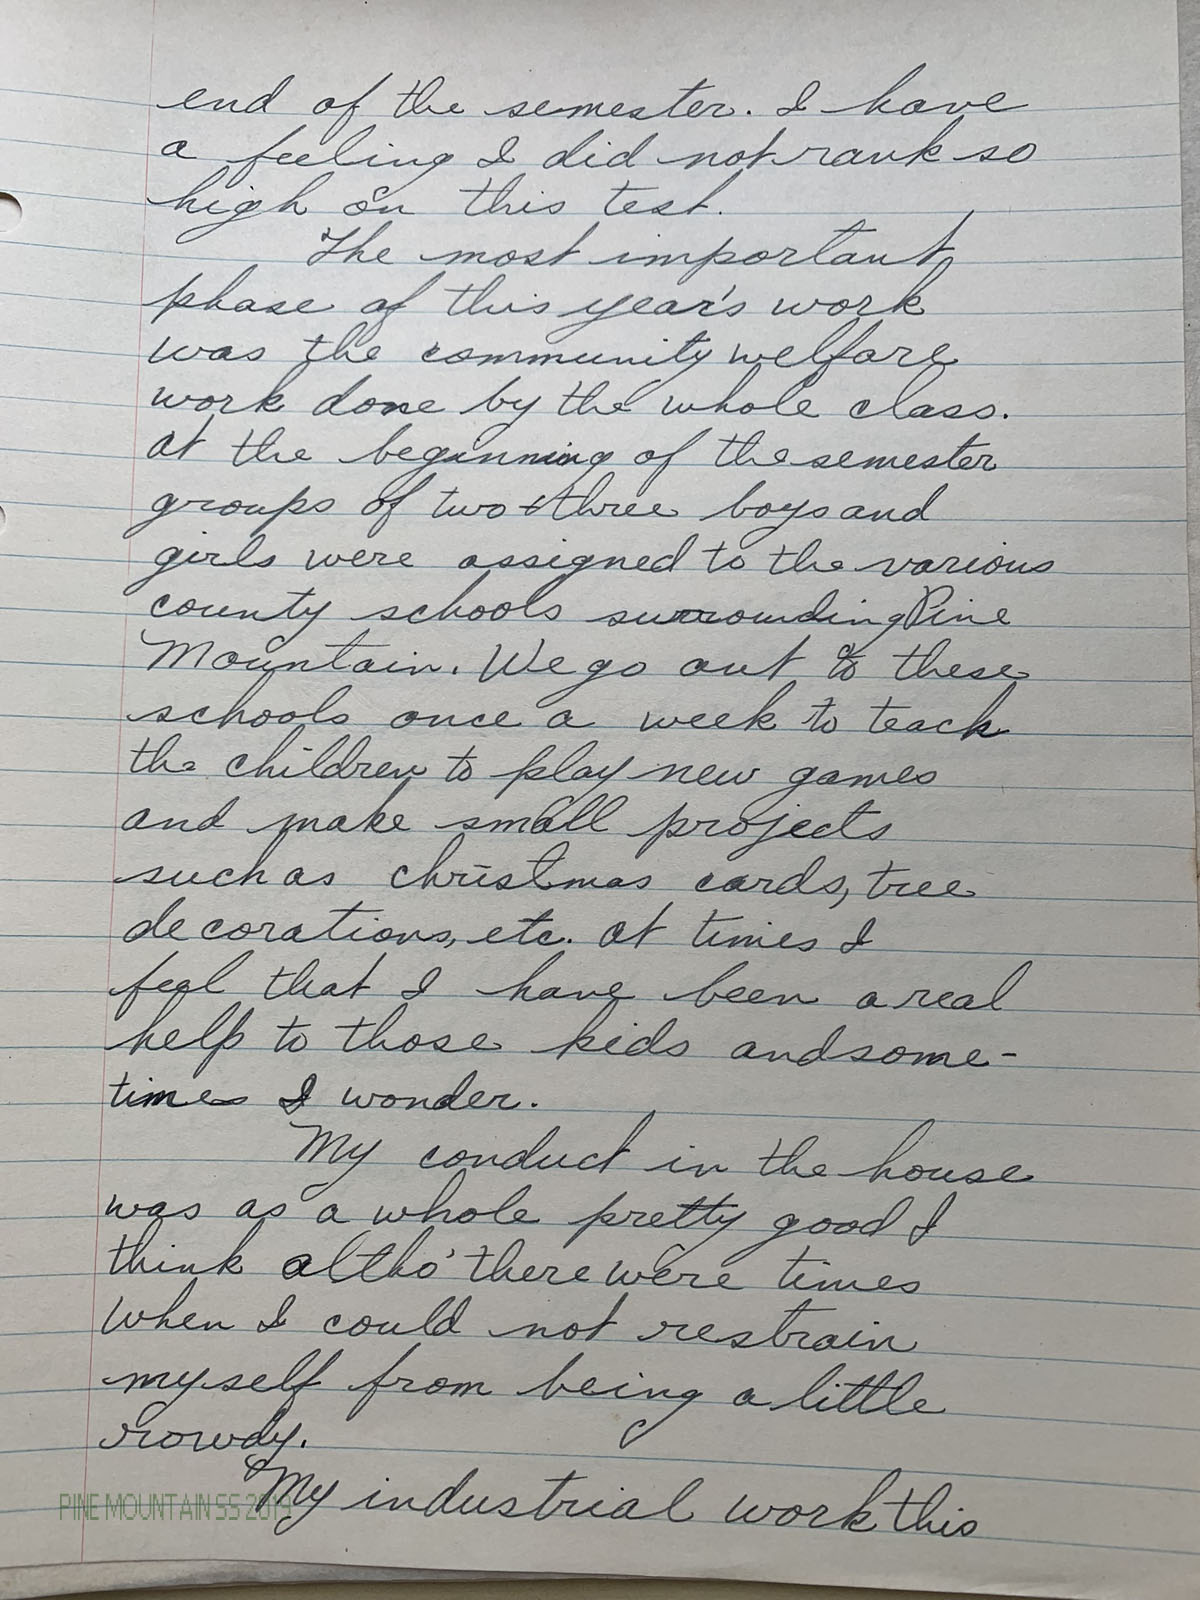 end of the semester. I have
a feeling I did not rank so
high on this test.
The most important
phase of this year's work
was the community welfare
work done by the whole class.
At the beginning of the semester
groups of two & three boys and
girls were assigned to the various
county schools surrounding Pine
Mountain. We go out to these
schools once a week to teach
the children to play new games
and make small projects
such as christmas cards, tree
decorations, etc. At times I
feel that I have been a real
help to those kids and some-
times I wonder.
My conduct in the house
was as a whole pretty good I
think altho' there were times
when I could not restrain
myself from being a little
rowdy.
My industrial work this
PINE MOUNTAIN SS 2019